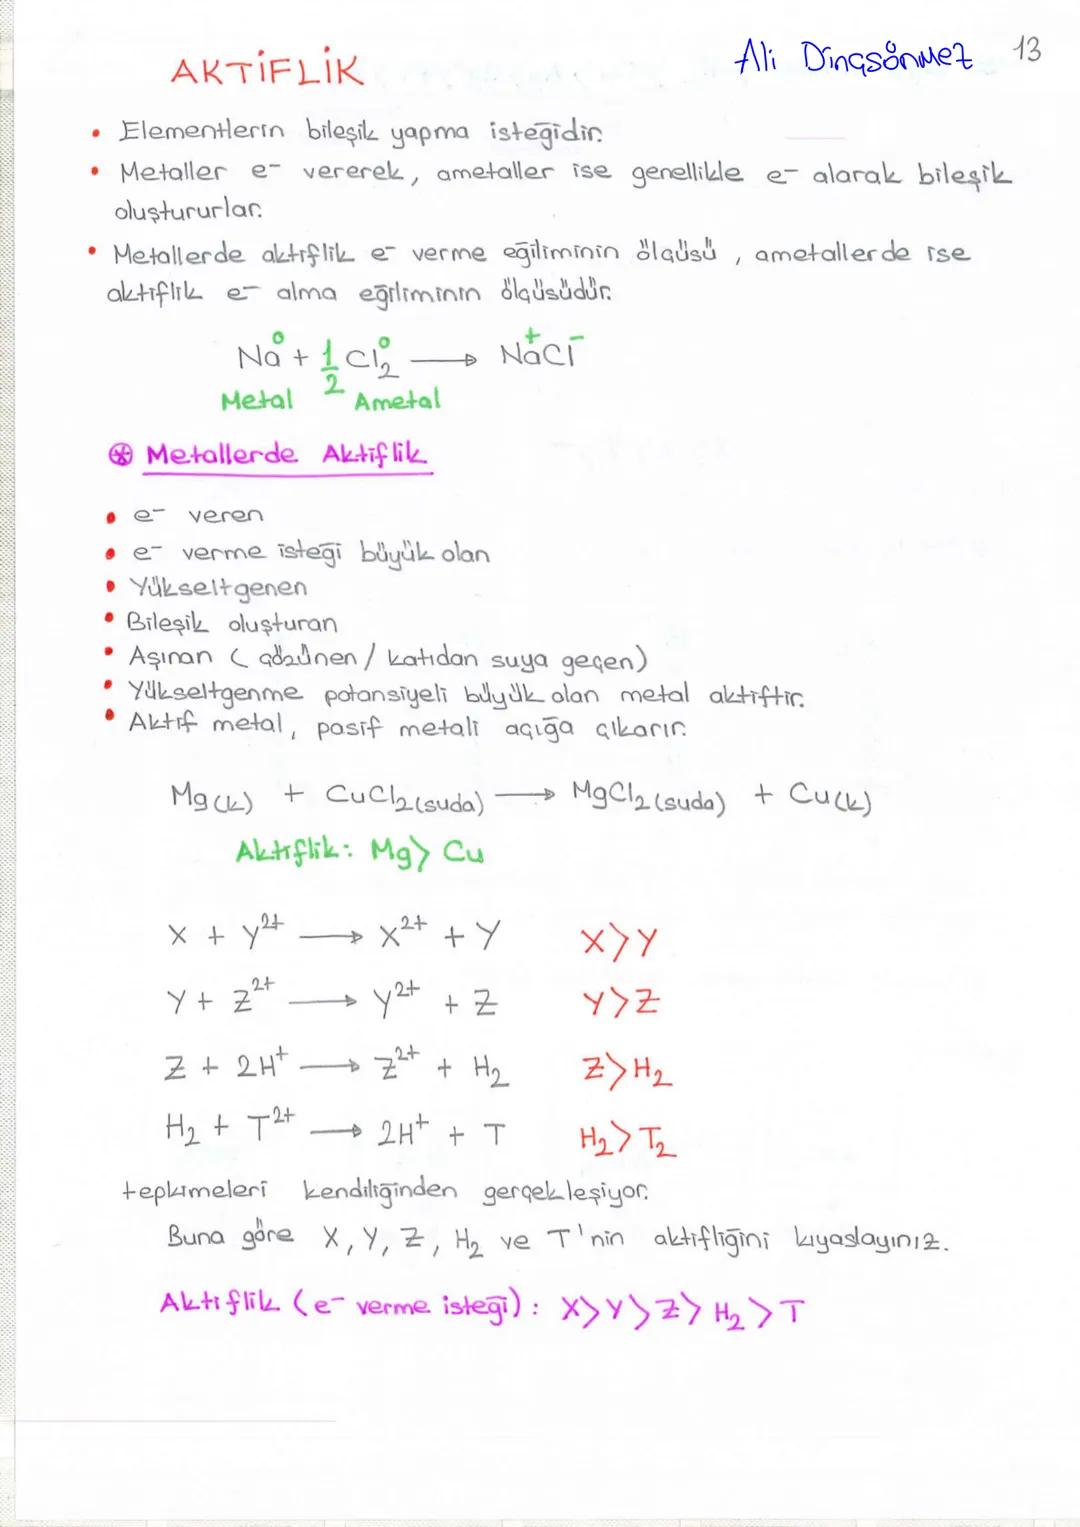 Ali Dinçsönmez 13
AKTİFLİK
• Elementlerin bileşik yapma isteğidir.
• Metaller e⁻ vererek, ametaller ise genellikle e⁻ alarak bileşik
oluştururlar.
• Metallerde aktiflik e⁻ verme eğiliminin ölçüsü, ametallerde ise
aktiflik e⁻ alma eğiliminin ölçüsüdür.
Na⁰ + 1/2 Cl₂⁰ → Na⁺Cl⁻
Metal Ametal
⊛ Metallerde Aktiflik
• e⁻ veren
• e⁻ verme isteği büyük olan
• Yükseltgenen
• Bileşik oluşturan
• Aşınan (çözünen / katıdan suya geçen)
• Yükseltgenme potansiyeli büyük olan metal aktiftir.
• Aktif metal, pasif metali açığa çıkarır.
Mg(k) + CuCl₂(suda) → MgCl₂(suda) + Cu(k)
Aktiflik: Mg > Cu
X + Y²⁺ → X²⁺ + Y X > Y
Y + Z²⁺ → Y²⁺ + Z Y > Z
Z + 2H⁺ → Z²⁺ + H₂ Z > H₂
H₂ + T²⁺ → 2H⁺ + T H₂ > T₂
tepkimeleri kendiliğinden gerçekleşiyor.
Buna göre X, Y, Z, H₂ ve T'nin aktifliğini kıyaslayınız.
Aktiflik (e⁻ verme isteği): X > Y > Z > H₂ > T